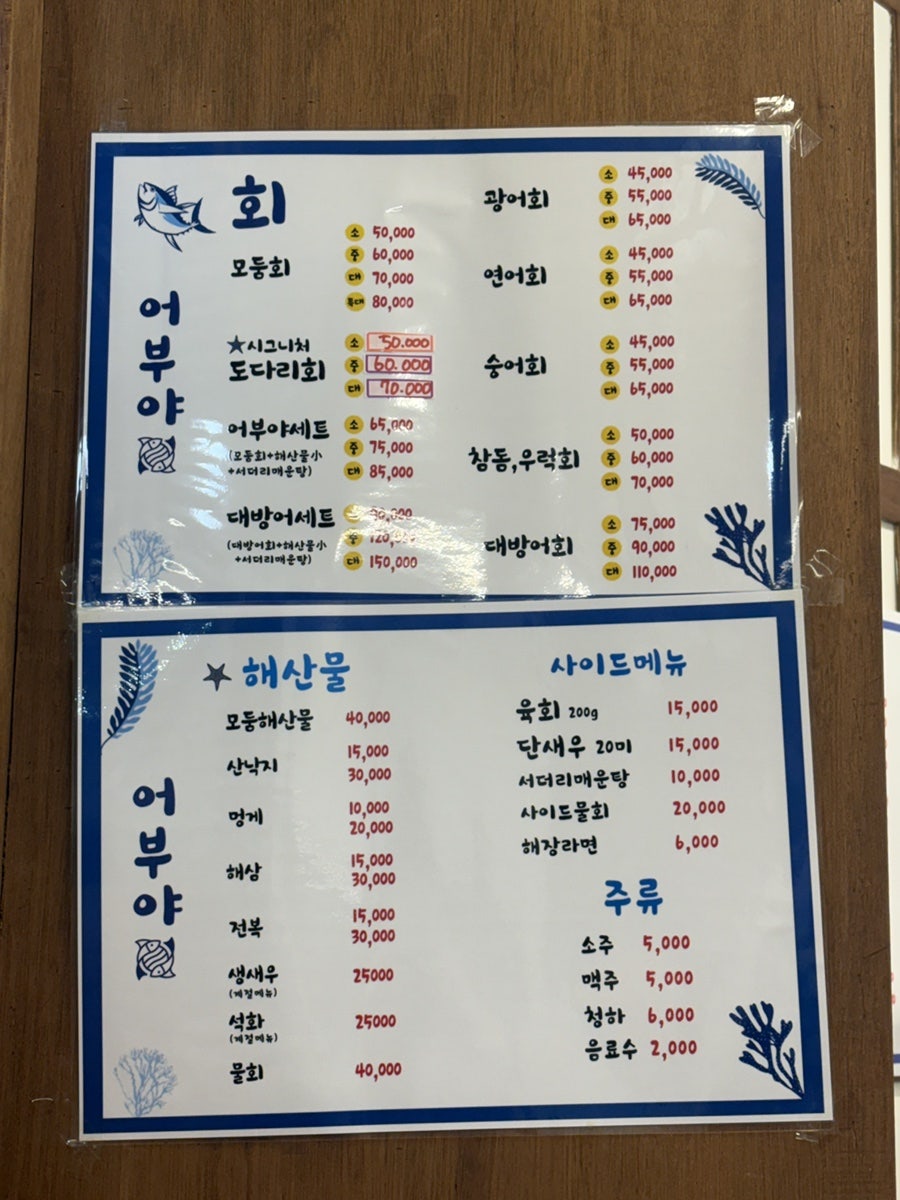 어부야
회
모둠회
소 50,000
중 60,000
대 70,000
특대 80,000
★시그니처
도다리회
소 50.000
중 60.000
대 70.000
어부야세트
(모둠회+해산물小
+서더리매운탕)
소 65,000
중 75,000
대 85,000
대방어세트
(대방어회+해산물小
+서더리매운탕)
중 120,000
대 150,000
광어회
소 45,000
중 55,000
대 65,000
연어회
소 45,000
중 55,000
대 65,000
숭어회
소 45,000
중 55,000
대 65,000
참돔,우럭회
소 50,000
중 60,000
대 70,000
대방어회
소 75,000
중 90,000
대 110,000
어부야
★ 해산물
모둠해산물 40,000
산낙지 15,000
30,000
멍게 10,000
20,000
해삼 15,000
30,000
전복 15,000
30,000
생새우 25000
(계절메뉴)
석화 25000
(계절메뉴)
물회 40,000
사이드메뉴
육회 200g 15,000
단새우 20미 15,000
서더리매운탕 10,000
사이드물회 20,000
해장라면 6,000
주류
소주 5,000
맥주 5,000
청하 6,000
음료수 2,000